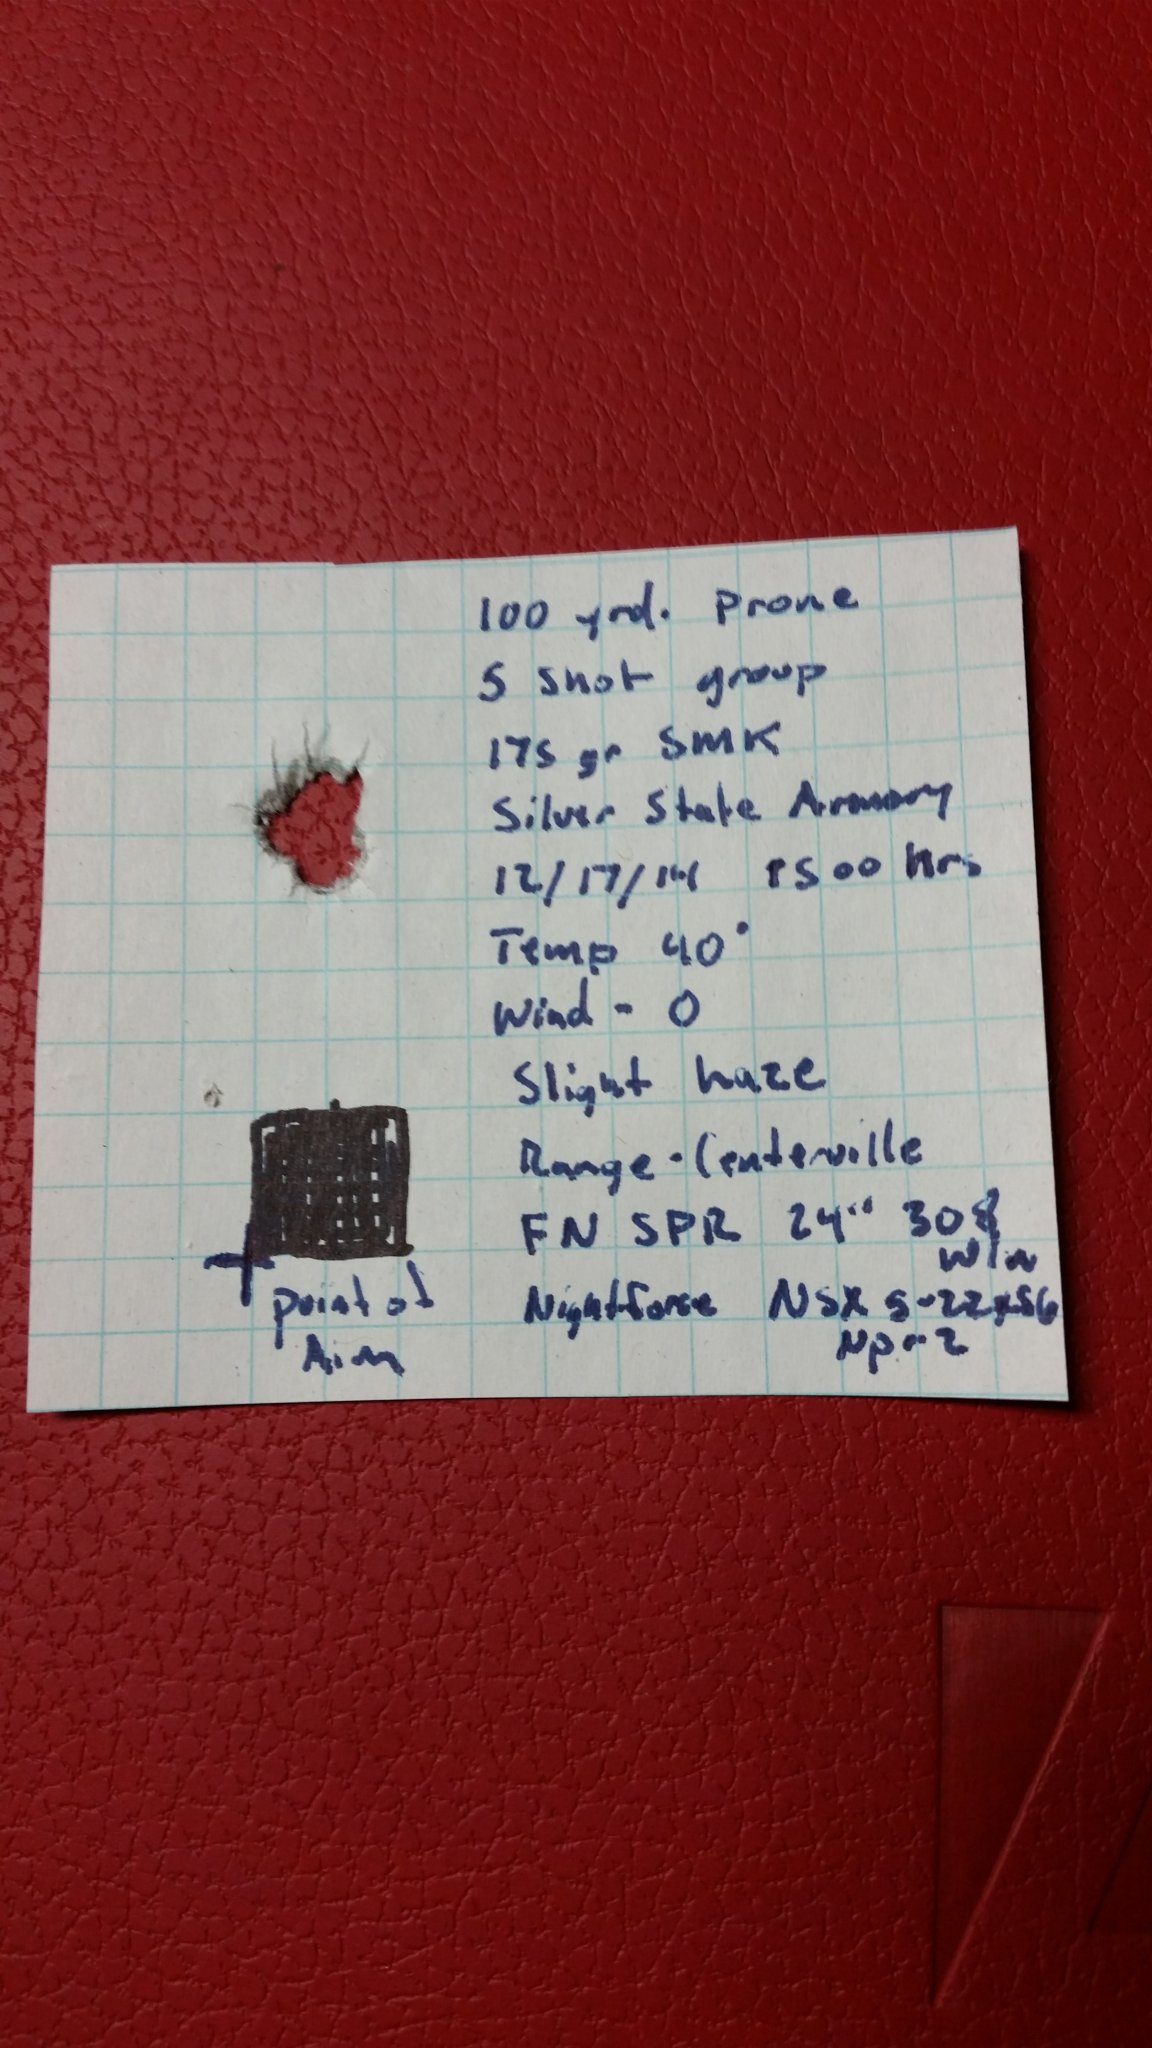 100 yrd. Prone
5 Shot group
175 gr SMK
Silver State Armory
12/17/14 1500 Hrs
Temp 40°
Wind - 0
Slight haze
Range - Centerville
FN SPR 24" 308
Win
Nightforce NSX 5-22x56
Np-2
point of
Aim